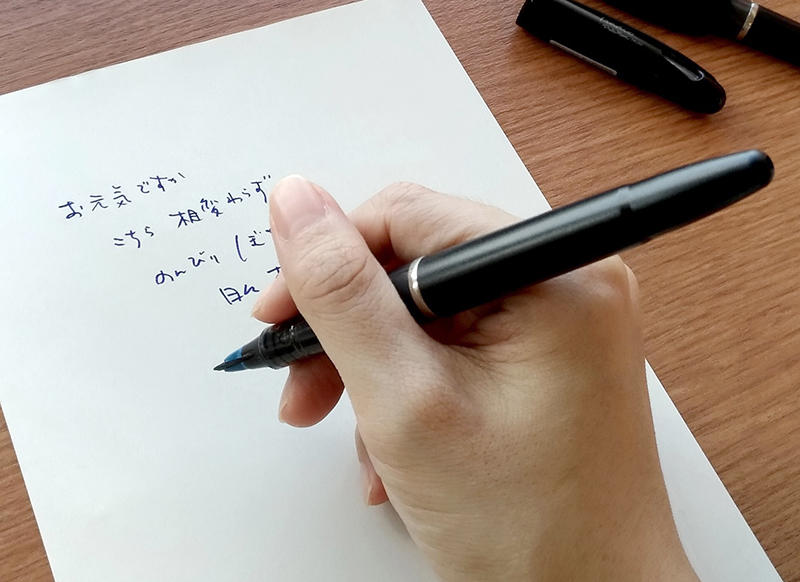 お元気ですか
こちら 相変わらず
のんびり